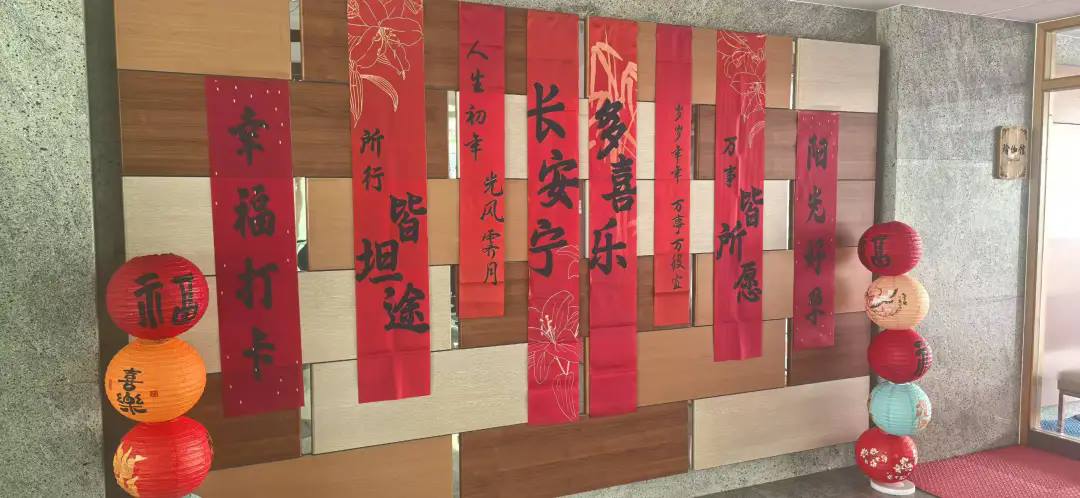 幸福打卡
所行
皆坦途
人生初年
光风霁月
长安宁
多喜乐
岁岁年年
万事万般宜
万事
皆所愿
阳光好
福
喜樂
瑜伽馆